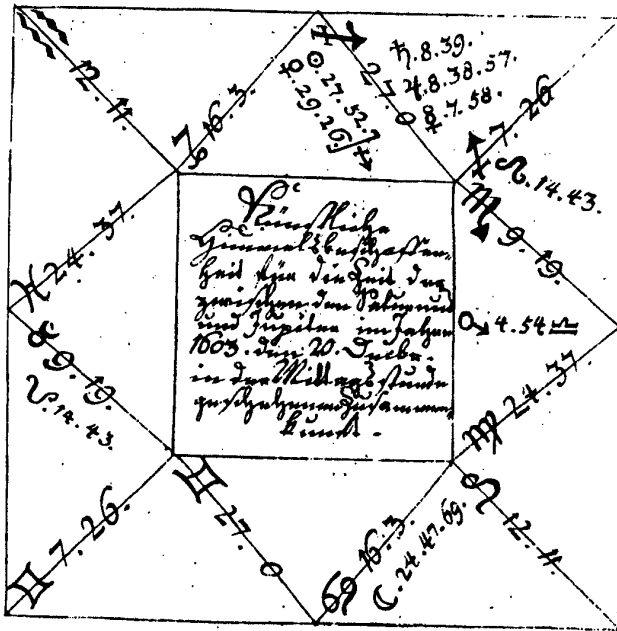 ♒ 12. 11.
♑ 16. 3.
♐ 27. 0
☉. 27. 52.
♀. 29. 26. ♐
♄. 8. 39.
♃. 8. 38. 57.
☿. 7. 58.
♐ 7. 26
☊. 14. 43.
♏ 9. 19.
♓ 24. 37.
♉ 9. 19.
☋. 14. 43.
♂ 4. 54 ♎
♍ 24. 37.
♌ 12. 11.
♊ 7. 26.
♊ 27. 0
♋ 16. 3.
☾. 24. 47. 69.
Himmelsbeschaffen-
heit für die Zeit der
zwischen den Saturnus
und Jupiter im Jahre
1603. den Decbr.
in der Mittagsstunde
geschehenen Zusammen-
kunft.